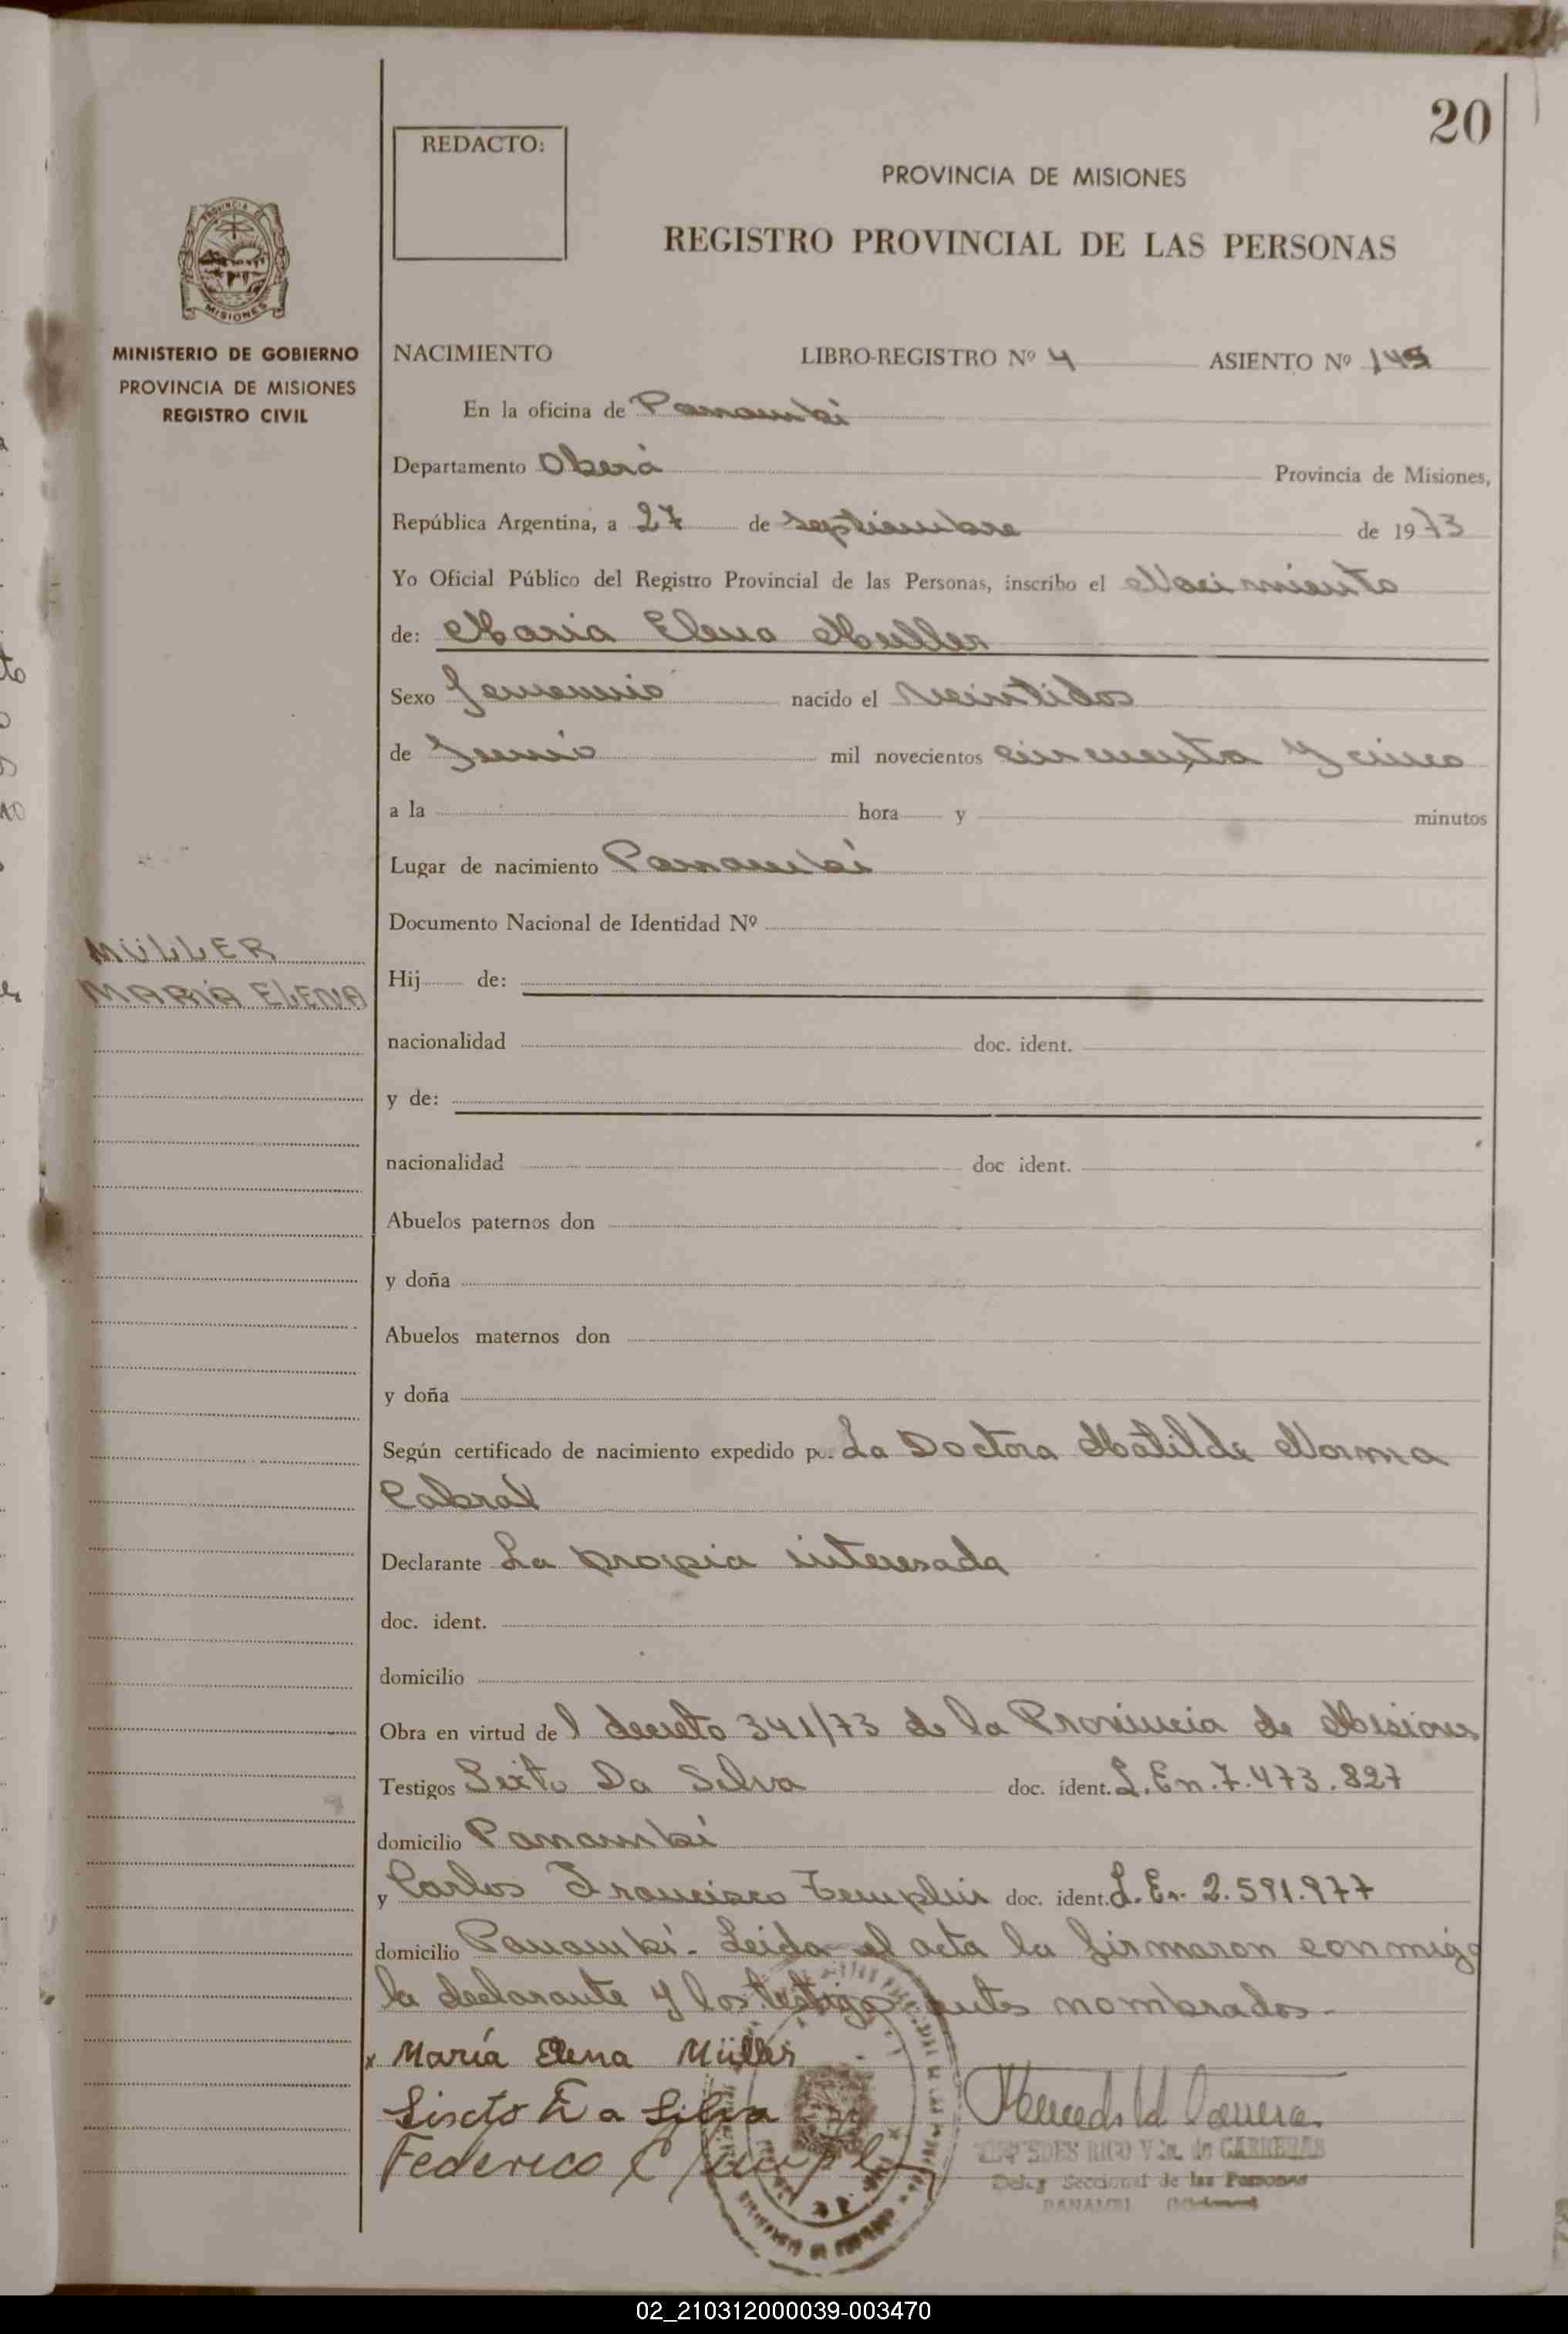 20
REDACTO:
PROVINCIA DE MISIONES
REGISTRO PROVINCIAL DE LAS PERSONAS
PROVINCIA DE
MISIONES
MINISTERIO DE GOBIERNO
PROVINCIA DE MISIONES
REGISTRO CIVIL
NACIMIENTO LIBRO-REGISTRO Nº 4 ASIENTO Nº 149
En la oficina de Panambí
Departamento Oberá Provincia de Misiones,
República Argentina, a 27 de septiembre de 1973
Yo Oficial Público del Registro Provincial de las Personas, inscribo el Nacimiento
de: Maria Elena Muller
Sexo femenino nacido el veintidos
de Junio mil novecientos cincuenta y cinco
a la hora y minutos
Lugar de nacimiento Panambí
Documento Nacional de Identidad Nº
MÜLLER
MARIA ELENA
Hij de:
nacionalidad doc. ident.
y de:
nacionalidad doc ident.
Abuelos paternos don
y doña
Abuelos maternos don
y doña
Según certificado de nacimiento expedido po. La Doctora Matilde Norma
Cabral
Declarante La propia interesada
doc. ident.
domicilio
Obra en virtud del decreto 341/73 de la Provincia de Misiones
Testigos Sixto Da Silva doc. ident. L.En.7.473.827
domicilio Panambí
y Carlos Francisco Templin doc. ident. L.En. 2.591.977
domicilio Panambí. Leida el acta la firmaron conmigo
la declarante y los testigos antes nombrados.
x María Elena Müller
Sixto Da Silva
Federico C
MERCEDES RICO Vda. de CARRERAS
Deleg Seccional de las Personas
PANAMBI
02_210312000039-003470